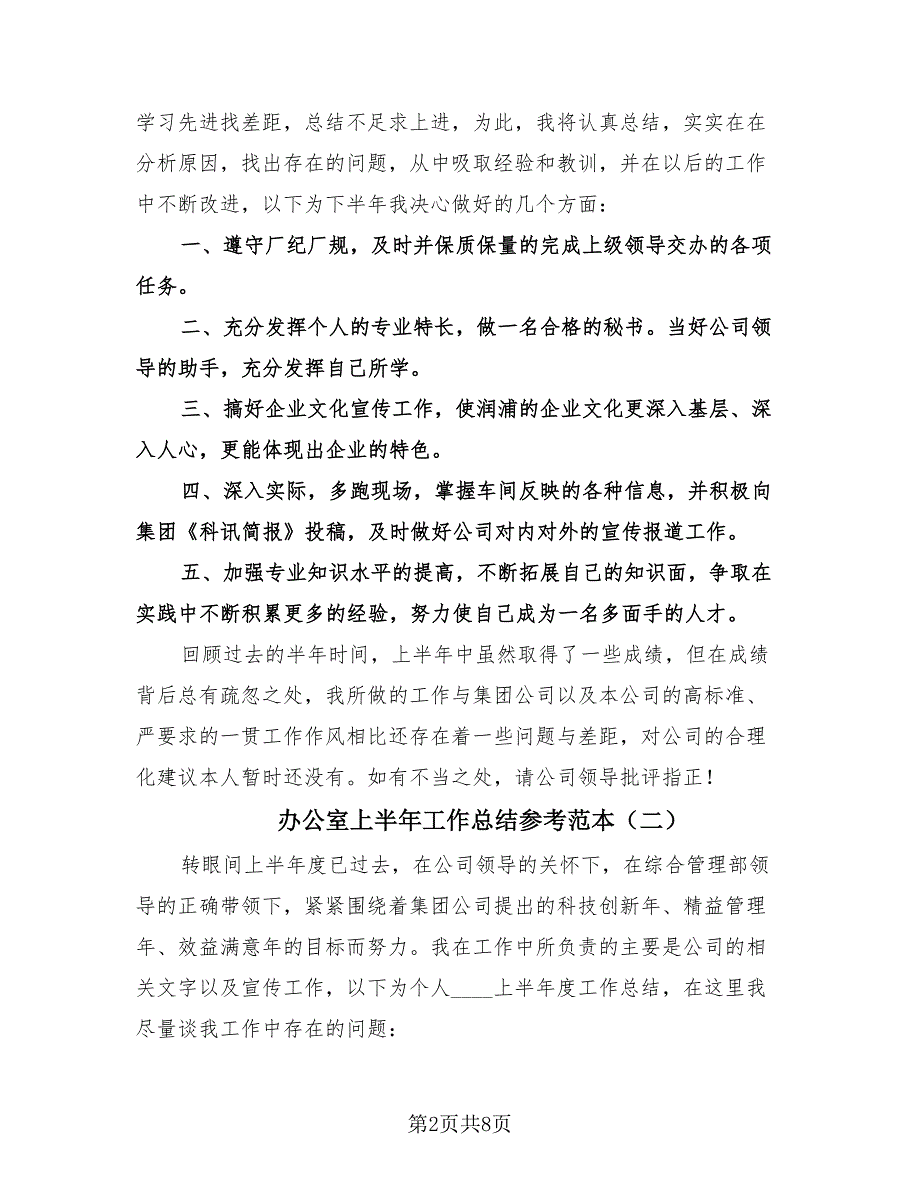 学习先进找差距，总结不足求上进，为此，我将认真总结，实实在在
分析原因，找出存在的问题，从中吸取经验和教训，并在以后的工作
中不断改进，以下为下半年我决心做好的几个方面：
一、遵守厂纪厂规，及时并保质保量的完成上级领导交办的各项
任务。
二、充分发挥个人的专业特长，做一名合格的秘书。当好公司领
导的助手，充分发挥自己所学。
三、搞好企业文化宣传工作，使润浦的企业文化更深入基层、深
入人心，更能体现出企业的特色。
四、深入实际，多跑现场，掌握车间反映的各种信息，并积极向
集团《科讯简报》投稿，及时做好公司对内对外的宣传报道工作。
五、加强专业知识水平的提高，不断拓展自己的知识面，争取在
实践中不断积累更多的经验，努力使自己成为一名多面手的人才。
回顾过去的半年时间，上半年中虽然取得了一些成绩，但在成绩
背后总有疏忽之处，我所做的工作与集团公司以及本公司的高标准、
严要求的一贯工作作风相比还存在着一些问题与差距，对公司的合理
化建议本人暂时还没有。如有不当之处，请公司领导批评指正！
办公室上半年工作总结参考范本（二）
转眼间上半年度已过去，在公司领导的关怀下，在综合管理部领
导的正确带领下，紧紧围绕着集团公司提出的科技创新年、精益管理
年、效益满意年的目标而努力。我在工作中所负责的主要是公司的相
关文字以及宣传工作，以下为个人____上半年度工作总结，在这里我
尽量谈我工作中存在的问题：
第2页共8页